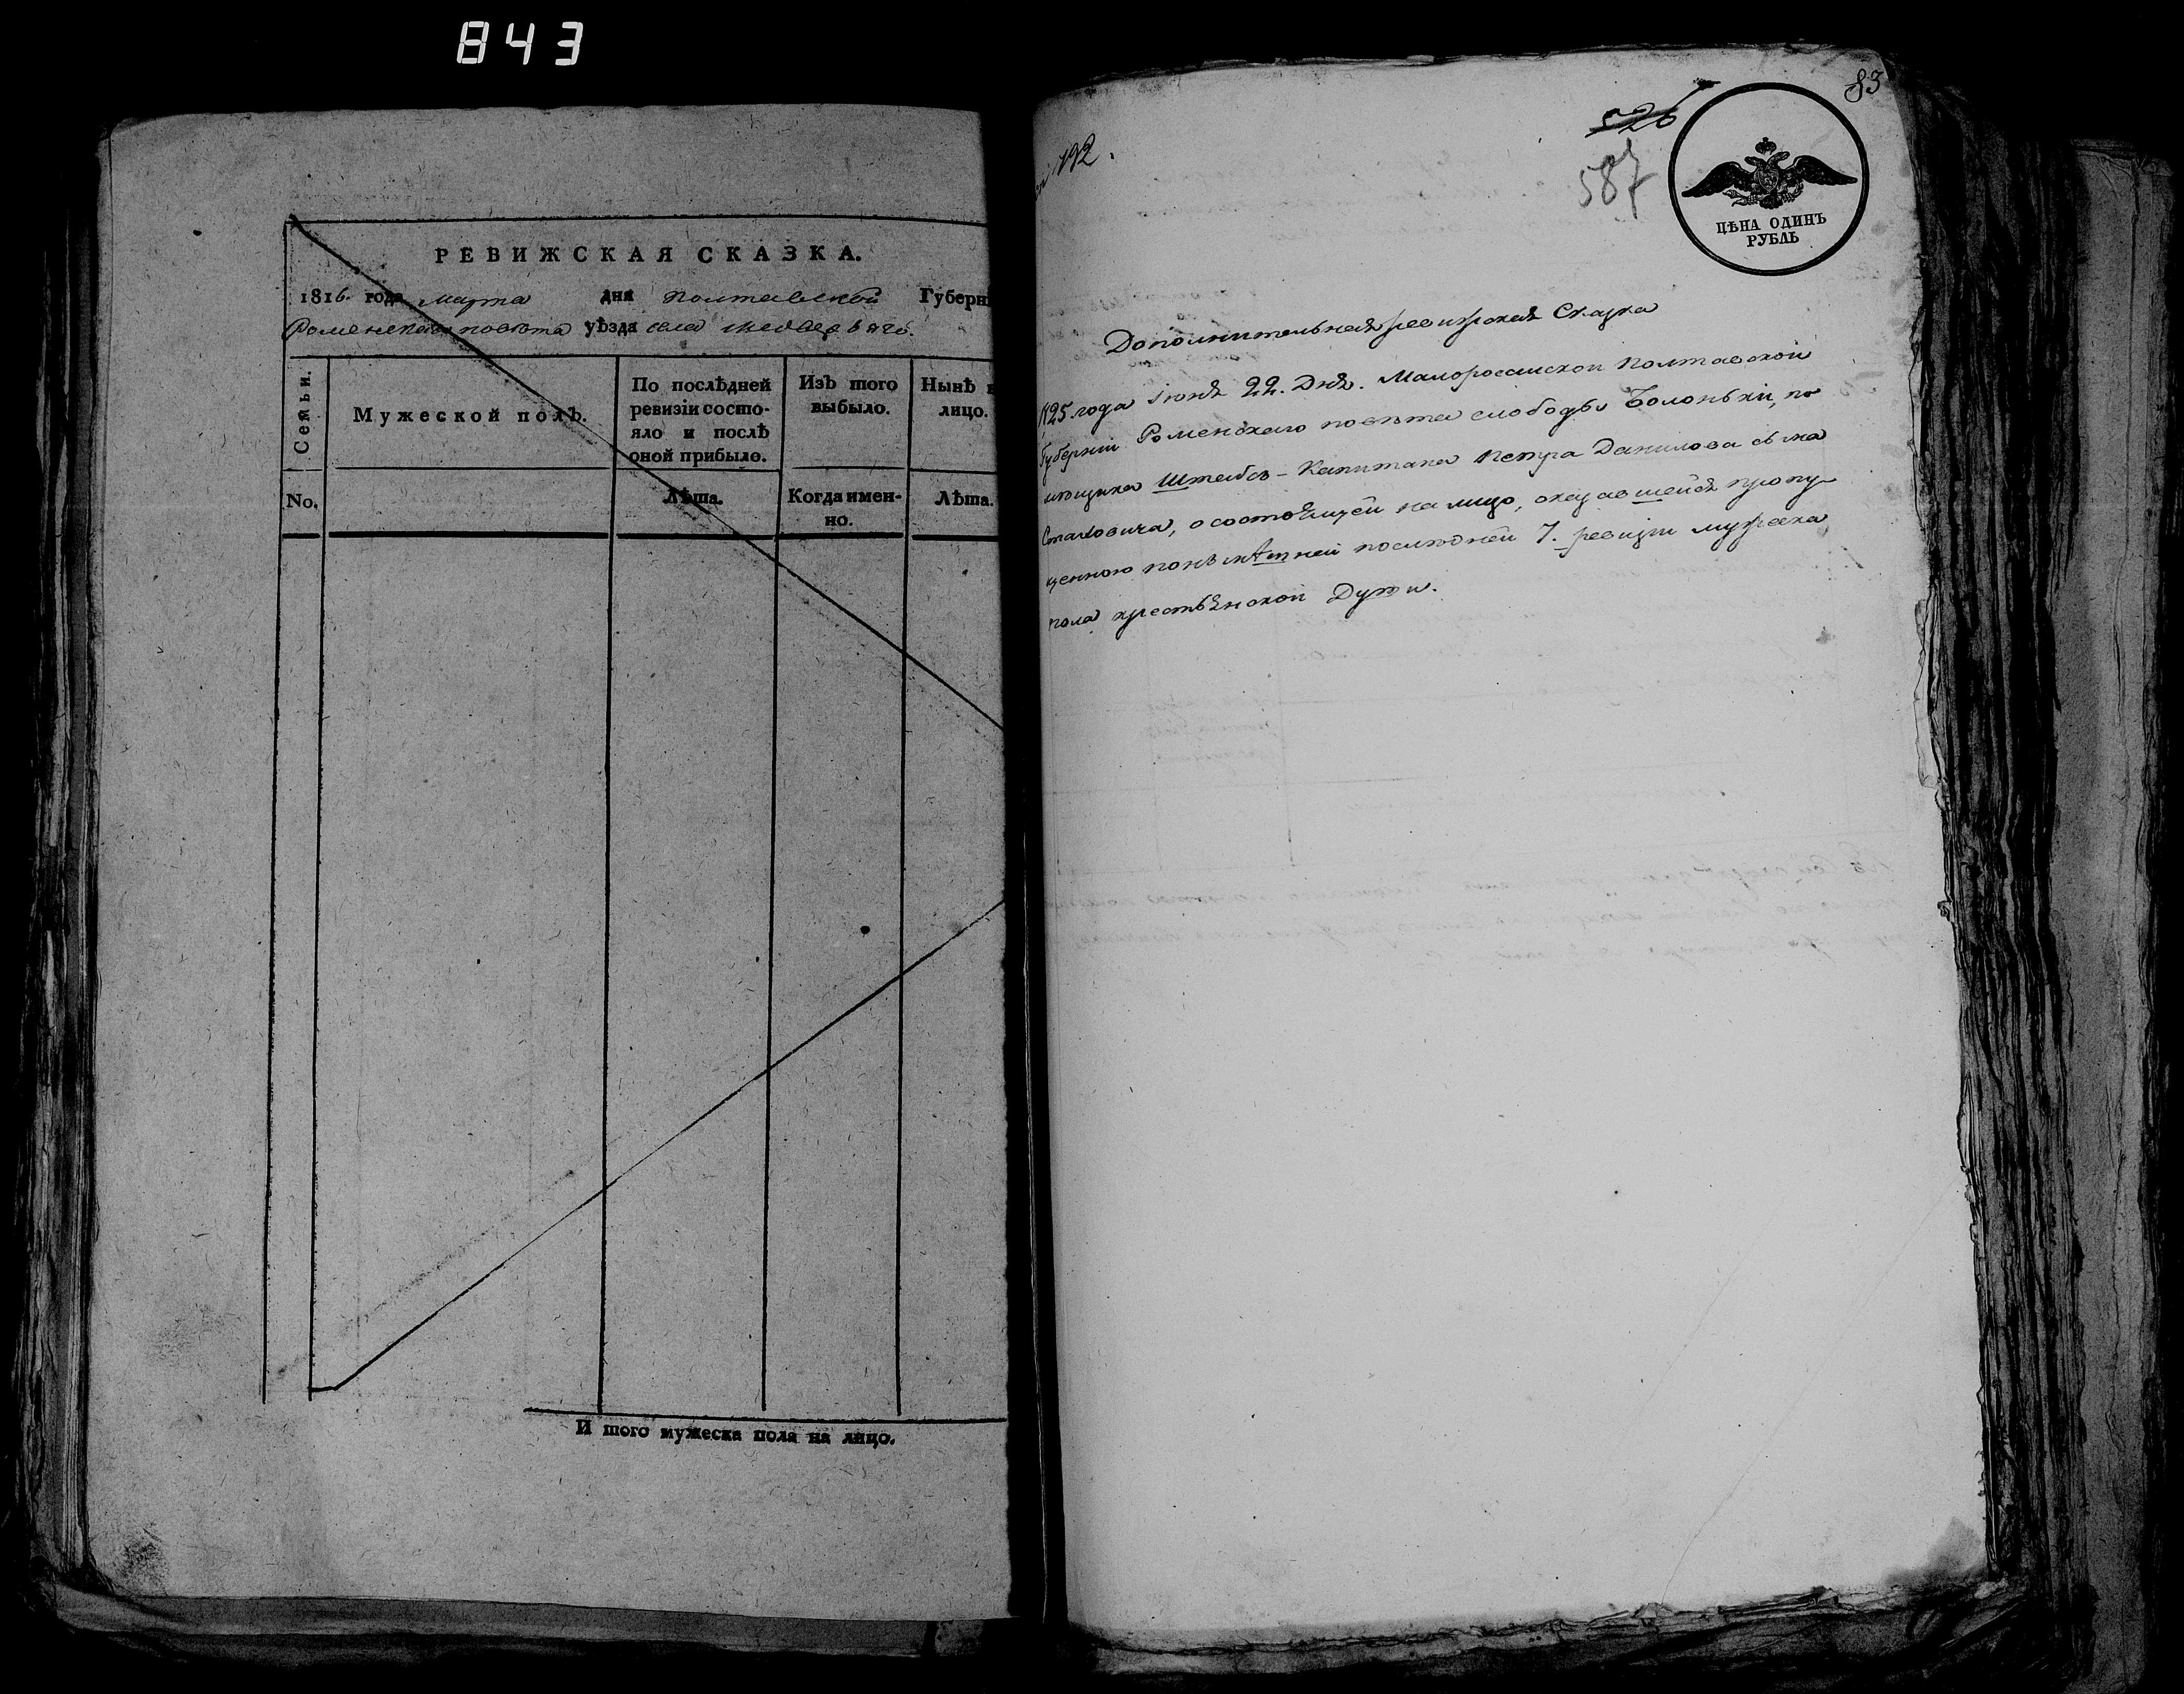 843
РЕВИЖСКАЯ СКАЗКА.
1816. года марта дня Полтавской Губерні
Роменскаго повѣта уѣзда села
Семьи.
Мужеской полъ.
По послѣдней
ревизіи состо-
яло и послѣ
оной прибыло.
Изъ того
выбыло.
Нынѣ н
лицо.
No.
Лѣта.
Когда имен-
но.
Лѣта.
И того мужеска пола на лицо.
192.
526
587
83
ЦѢНА ОДИНЪ
РУБЛЬ
Дополнительная ревижская Сказка
1825 года Іюня 22. Дня. Малороссійской Полтавской
Губерніи Роменскаго повѣта слободы Болоньки, по
мѣщика Штабсъ-Капитана Петра Данилова сына
о состоящей на лицо, оказавшейся пропу-
щенною по послѣдней 7. ревизіи мужеска
пола крестьянской Души.